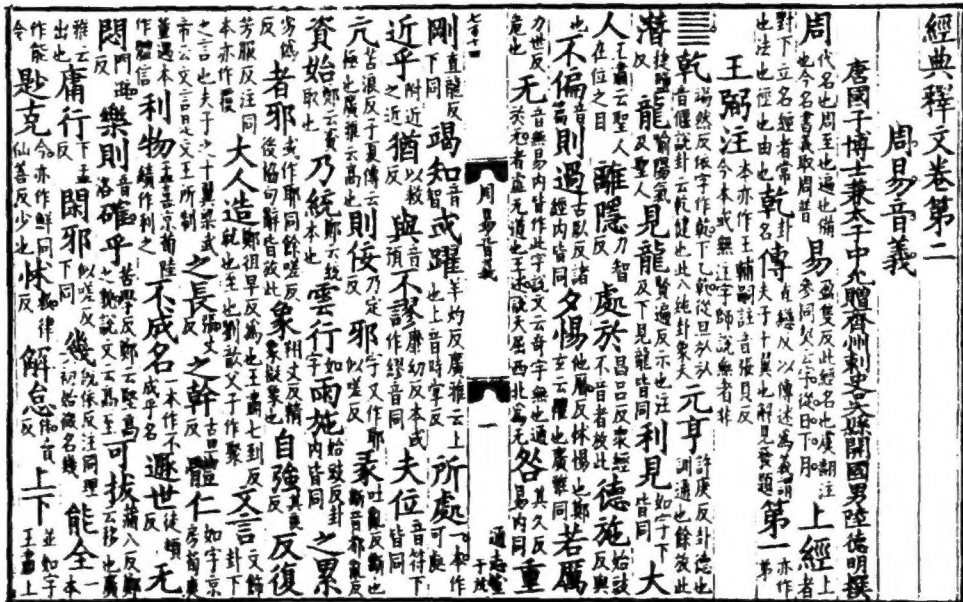 經典釋文卷第二
周易音義
唐國子博士兼太子中允贈齊州刺史吳縣開國男陸德明撰
周代名也周至也遍也備也今名書義取周普易盈隻反此經名也虞翻注參同契云字從日下月上經上者
對下立名經者常也法也徑也由也乾卦名傳直戀反以傳述為義謂夫子十翼也解見發題第一亦作弟
王弼注本亦作王輔嗣註音張具反今本或無注字師說無者非
䷀乾竭然反依字作乾下乙乾從旦㫃㫃音偃說卦云乾健也此八純卦象天元亨許庚反卦德也訓通也餘放此
潛捷鹽反龍喻陽氣及聖人見龍賢遍反示也注及下見龍皆同利見如字下皆同大
人王肅云聖人在位之目離隱力智反處於昌呂反衆經不音者放此德施始豉反與
也不偏音篇則過古臥反諸經內皆同夕惕他歷反怵惕也鄭玄云懼也廣雅同若厲
力世反危也无音無易內皆作此字說文云奇字無也通於无者虛无道也王述說天屈西北為无咎其久反易內同重
周易音義 一 通志堂
剛直龍反下同竭知音智或躍羊灼反廣雅云上也上音時掌反所處一本作可處
近乎附近之近猶以較反與音預不謬靡幼反本或作繆音同夫位音符下皆同
亢苦浪反子夏傳云極也廣雅云高也則佞乃定反邪字又作耶似嗟反彖吐亂反斷也斷音都亂反
資始鄭云資取也乃統鄭云統本也雲行如字雨施始豉反卦內皆同之累
劣偽反者邪或作耶同餘嗟反後協句辭皆放此象翔丈反精象擬象也自強其良反反復
芳服反注同本亦作覆大人造鄭徂早反為也王肅七到反就也至也劉歆父子作聚文言文飾卦下
之言也夫子之十翼梁武帝云文言是文王所制之長張丈反之幹古旦反體仁如字京房荀爽
董遇本作體信利物孟喜京荀陸績作利之不成名一本作不成乎名遯世徒頓反无
悶門遜反樂則音洛確乎苦學反鄭云堅高之貌說文云高至可拔蒲八反鄭云移也廣
雅云出也庸行下孟反閑邪下同似嗟反幾既依反注同理初始微名幾能全一本
作能令尟克今亦作鮮同仙善反少也怵勑律反解怠佳賣反上下並如字王肅上